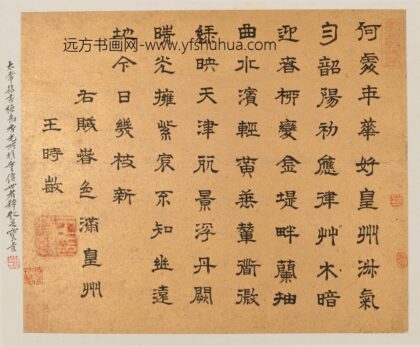 远方书画网-www.yfshuhua.com
何處年華好皇州淑氣
勻韶陽初應律艸木暗
迎春柳變金堤畔蘭抽
曲水濱輕黃垂輦衜微
綠映天津麗景浮丹闕
晴光擁紫宸不知幽遠
墬今日幾枝新
右賦春色滿皇州
王時敏
太常隸書